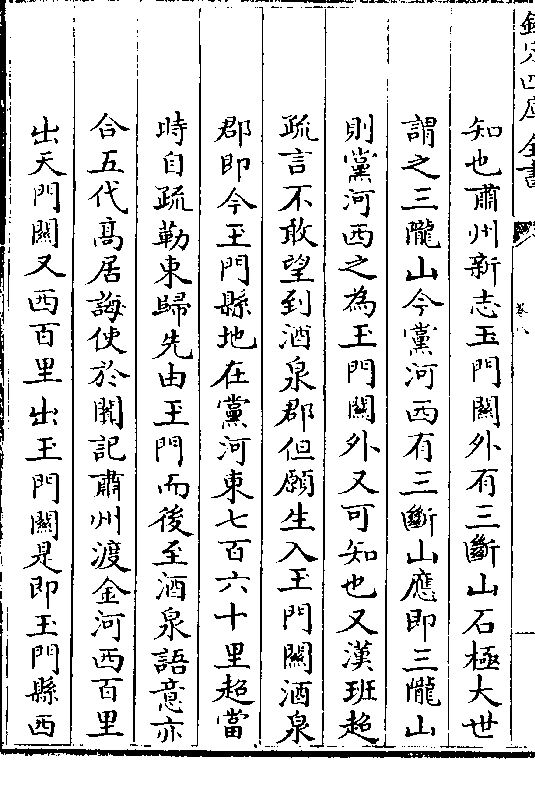 欽定四庫全書
卷八
知也肅州新志玉門關外有三斷山石極大世
謂之三隴山今黨河西有三斷山應即三隴山
則黨河西之為玉門關外又可知也又漢班超
疏言不敢望到酒泉郡但願生入玉門關酒泉
郡即今玉門縣地在黨河東七百六十里超當
時自疏勒東歸先由玉門而後至酒泉語意亦
合五代高居誨使於闐記肅州渡金河西百里
出天門關又西百里出玉門關是即玉門縣西